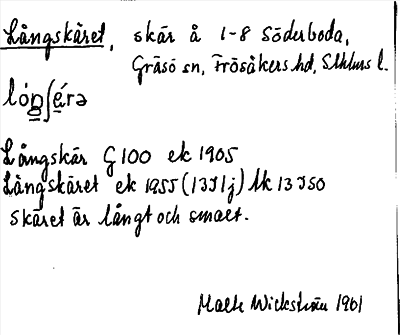 Långskäret, skär å 1-8 Söderboda,
Gräsö sn, Frösåkers hd, Sthlms l.
Långskär G100 ek 1905
Långskäret ek 1955 (13I1j) tk 13I50
Skäret är långt och smalt.
Malte Wickström 1961